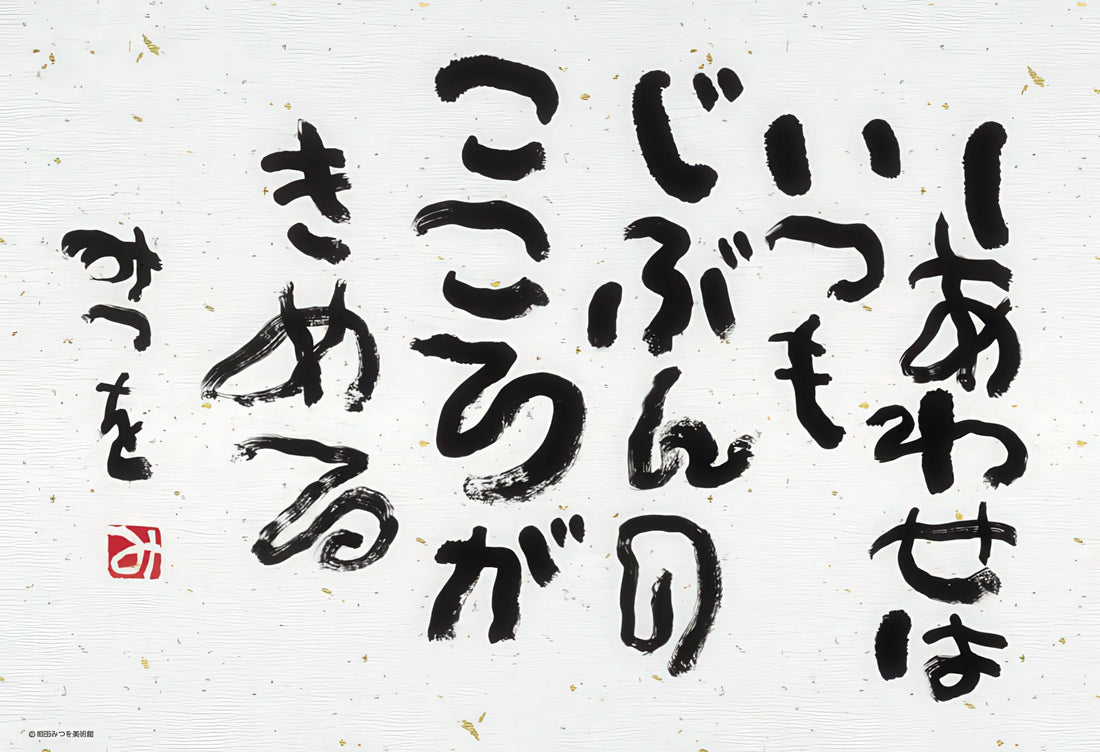 しあわせは
いつも
じぶんの
こころが
きめる
みつを
©相田みつを美術館